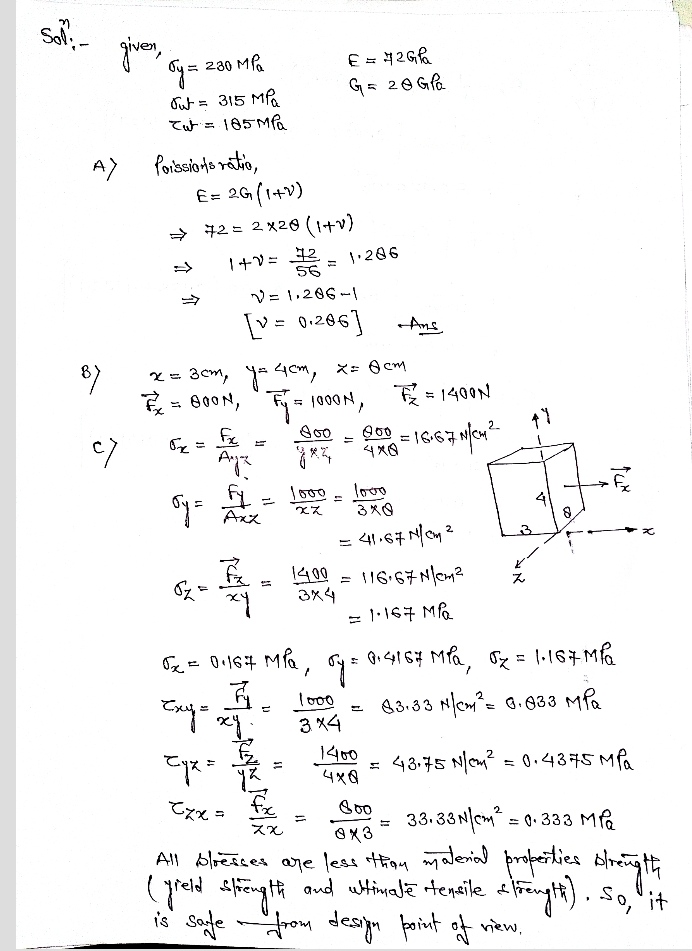 Solⁿ:- given,
σy = 230 MPa E = 72 GPa
σut = 315 MPa G = 28 GPa
τut = 185 MPa
A) Poission's ratio,
E = 2G (1+ν)
⇒ 72 = 2×28 (1+ν)
⇒ 1+ν = 72/56 = 1.286
⇒ ν = 1.286-1
[ν = 0.286] Ans
B) x = 3cm, y = 4cm, z = 8cm
F⃗x = 800N, F⃗y = 1000N, F⃗z = 1400N
C) σx = Fx/Ayz = 800/y×z = 800/4×8 = 16.67 N/cm²
σy = Fy/Axz = 1000/xz = 1000/3×8
= 41.67 N/cm²
σz = F⃗z/xy = 1400/3×4 = 116.67 N/cm²
= 1.167 MPa
Y
F⃗x
4
8
3
x
z
σx = 0.167 MPa, σy = 0.4167 MPa, σz = 1.167 MPa
τxy = F⃗y/xy. = 1000/3×4 = 83.33 N/cm² = 0.833 MPa
τyz = F⃗z/yz = 1400/4×8 = 43.75 N/cm² = 0.4375 MPa
τzx = F⃗x/zx = 800/8×3 = 33.33 N/cm² = 0.333 MPa
All stresses are less than material properties strength
(yield strength and ultimate tensile strength). So, it
is safe from design point of view.